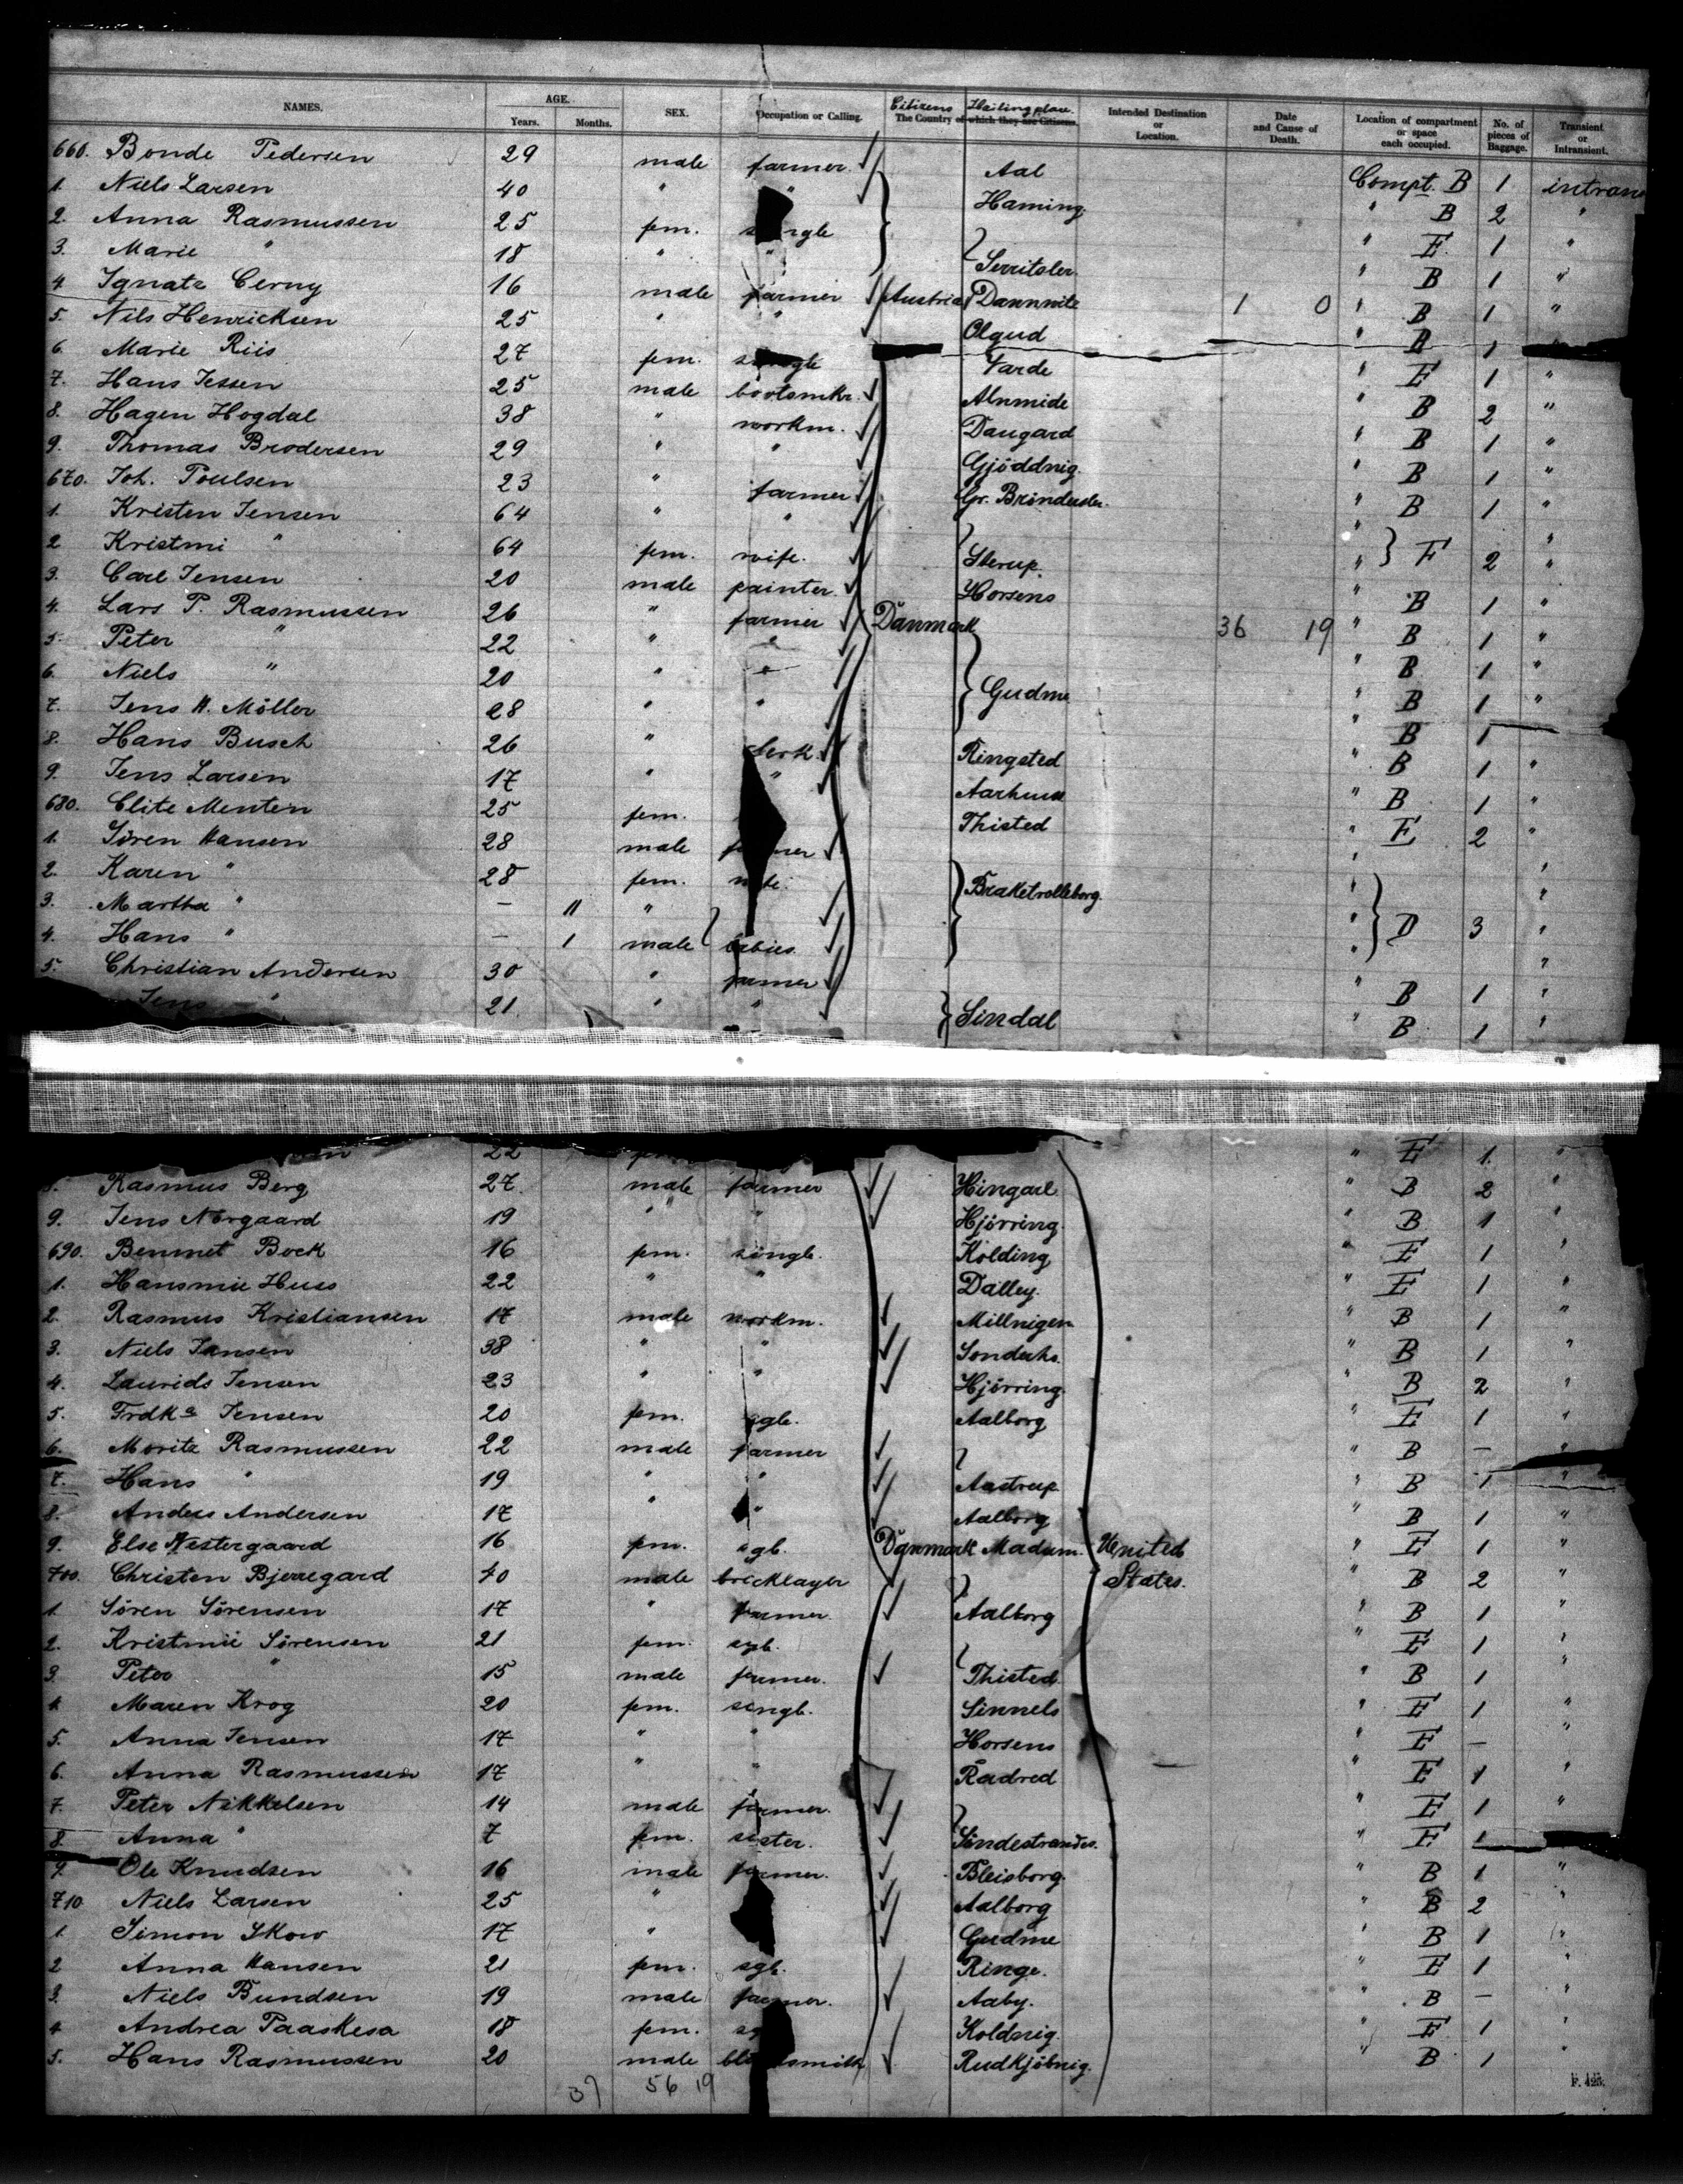 NAMES. AGE. Years. Months. SEX. Occupation or Calling. Citizens The Country of which they are Citizens. Hailing place. Intended Destination or Location. Date and Cause of Death. Location of compartment or space each occupied. No. of pieces of Baggage. Transient or Intransient.
660. Bonde Pedersen 29 male farmer Aal Compt. B 1 intrans
1. Niels Larsen 40 " " Haming " B 2 "
2. Anna Rasmussen 25 fem. single " E 1 "
3. Marie " 18 " " Serritslev " B 1 "
4. Ignatz Cerny 16 male farmer Austria Dannwitz 1 0 " B 1 "
5. Nils Henricksen 25 " " Olgud " B 1
6. Marie Riis 27 fem. single Varde " E 1 "
7. Hans Jessen 25 male bootsmkr. Alnmide " B 2 "
8. Hagen Hogdal 38 " workm. Daugard " B 1 "
9. Thomas Brodersen 29 " " Gjöddnig " B 1 "
670. Joh. Poulsen 23 " farmer Gr. Brönderslev " B 1 "
1. Kristen Jensen 64 " " " "
2 Kristmi " 64 fem. wife. Sterup. " F 2 "
3. Carl Jensen 20 male painter Horsens B 1 "
4. Lars P. Rasmussen 26 " farmer Danmark 36 19 " B 1 "
5. Peter " 22 " " " B 1 "
6. Niels " 20 " " Gudme " B 1 "
7. Jens H. Möller 28 " " " B 1
8. Hans Busch 26 " clerk. Ringsted " B 1 "
9. Jens Larsen 17 " " Aarhuus " B 1 "
680. Clite Menten 25 fem. Thisted " E 2 "
1. Sören Hansen 28 male farmer " "
2. Karen " 28 fem. wife. Braketrolleborg " "
3. Martha " — 11 " " D 3 "
4. Hans " — 1 male babies " "
5. Christian Andersen 30 " farmer " B 1 "
Jens " 21 " " Sindal " B 1 "
22 " E 1 "
8. Rasmus Berg 27 male farmer Hingarl " B 2 "
9. Jens Norgaard 19 " " Hjörring " B 1 "
690. Bennet Bock 16 fem. singl. Kolding " E 1 "
1. Hansmie Huss 22 " " Dalley. " E 1 "
2. Rasmus Kristiansen 17 male workm. Millnigen " B 1 "
3. Niels Jansen 38 " " Sonderhs. " B 1 "
4. Laurids Jensen 23 " " Hjörring " B 2 "
5. Frdka Jensen 20 fem. sgl. Aalborg " E 1 "
6. Moritz Rasmussen 22 male farmer " B — "
7. Hans " 19 " " Aastrup " B 1 "
8. Anders Andersen 17 " " Aalborg " B 1 "
9. Else Westergaard 16 fem. sgl. Danmark Madum. United " E 1 "
700. Christen Bjerregard 40 male bricklayer States. " B 2 "
1. Sören Sörensen 17 " farmer. Aalborg " B 1 "
2. Kristmie Sörensen 21 fem. sgl. " E 1 "
3. Peter " 15 male farmer. Thisted " B 1 "
4 Maren Krog 20 fem. singl. Sinnels " E 1 "
5. Anna Jensen 17 " " Horsens " E — "
6. Anna Rasmussen 17 " " Radred " E 1 "
7. Peter Nikkelsen 14 male farmer. " E 1 "
8. Anna " 7 fem. sister. Sindestrandes. " E 1
9. Ole Knudsen 16 male farmer. Bleisborg " B 1 "
710 Niels Larsen 25 " Aalborg " B 2 "
1. Simon Skow 17 " Gudme " B 1 "
2 Anna Hansen 21 fem. sgl. Ringe. " E 1 "
3. Niels Bundsen 19 male farmer. Aaby. " B — "
4 Andrea Paaskesa 18 fem. Koldnig. " E 1 "
5. Hans Rasmussen 20 male blacksmith Rudkjöbnig. " B 1
37 56 19
F. 425.